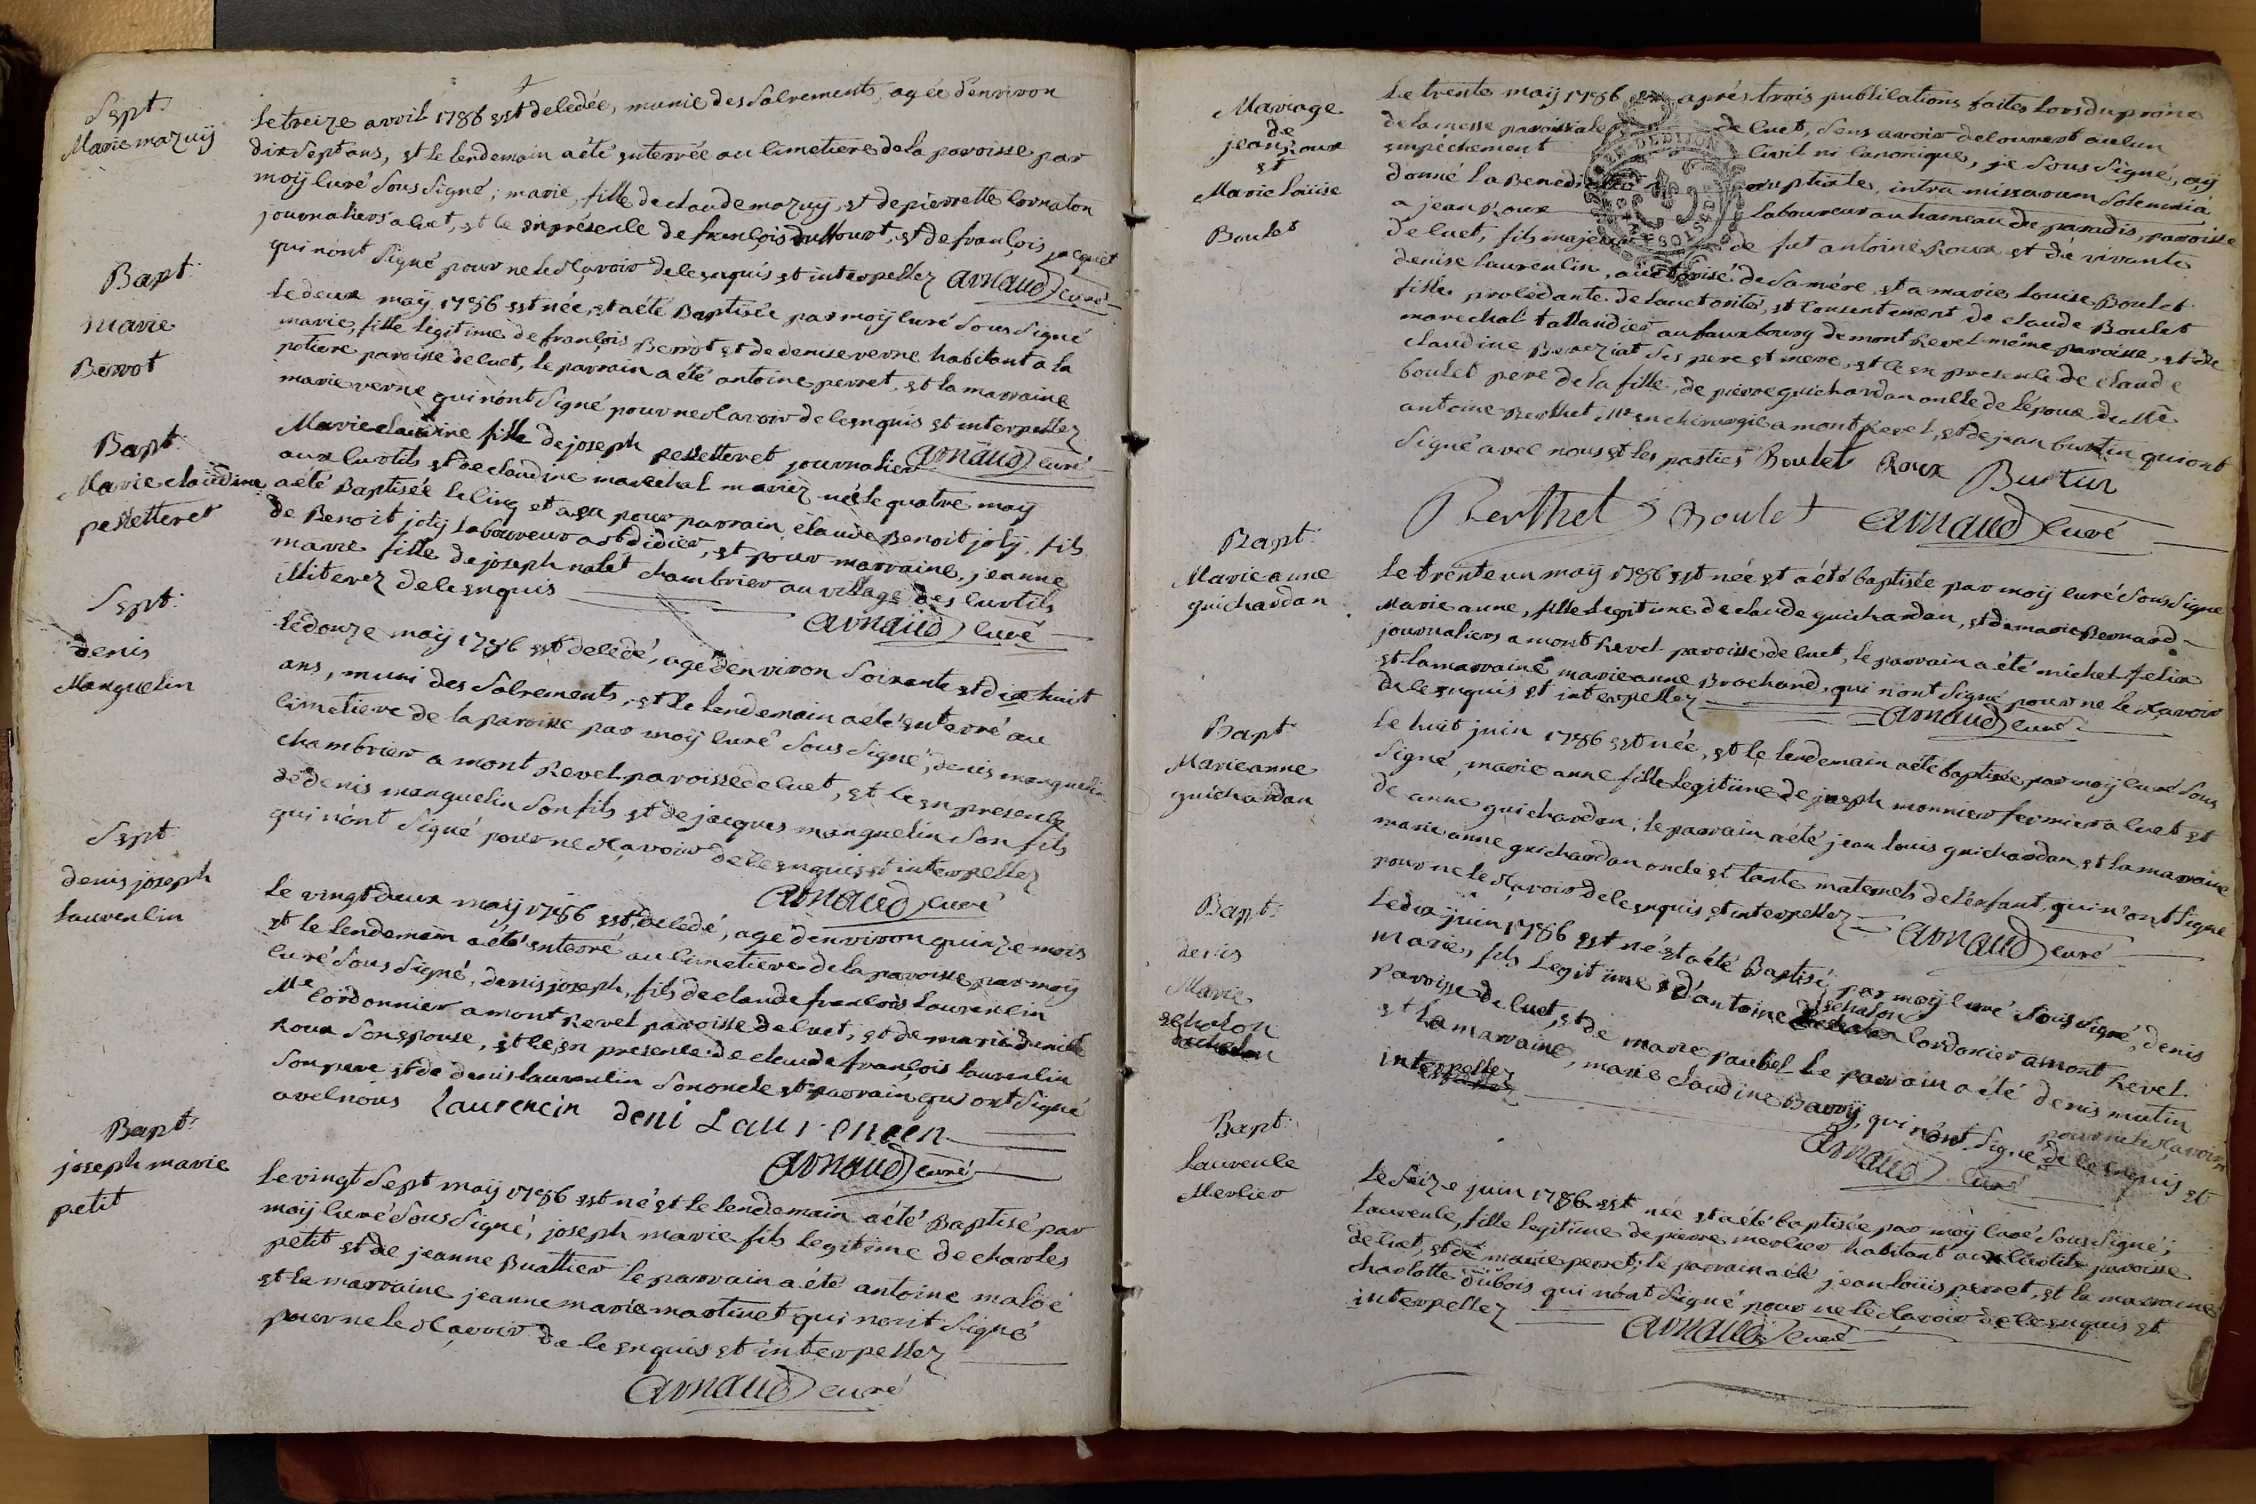 Sept:
Marie mazuij
Le treize avril 1786 est decedée, munie des Sacrements, agée d'environ
dix Sept ans, et le lendemain a été enterrée au cimetiere de la paroisse par
moij curé Sous Signé; marie, fille de claude mazuij, et de pierrette cornaton
journaliers a cuet, et ce en présence de françois duffourt, et de françois pacquet
qui n'ont Signé pour ne le sçavoir de ce enquis et interpellez Arnaud curé
Bapt:
marie
Berrot
Le deux maij 1786 est née, et a été Baptisée par moij curé Sous Signé
marie, fille légitime de françois Berrot et de denise verne habitant a la
potiere paroisse de cuet, le parrain a été antoine perret, et la marraine
marie verne qui n'ont Signé pour ne sçavoir de ce enquis et interpellez
Arnaud curé
Bapt:
Marie claudine
pelletteret
Marie claudine fille de joseph pelletteret journalier
aux curtils et de claudine maréchal mariez née le quatre maij
a été Baptisée le cinq et a eu pour parrain claude Benoit jolij, fils
de Benoit jolij laboureur a st didier, et pour marraine, jeanne
marie fille de joseph nalet chambrier au village des curtils
illiterez de ce enquis
Arnaud curé
Sept:
denis
Manguelin
Le douze maij 1786 est decedé, agé d'environ Soixante et dix huit
ans, muni des Sacrements, et le lendemain a été enterré au
cimetiere de la paroisse par moij curé Sous Signé, denis manguelin
chambrier a mont Revel paroisse de cuet, et ce en presence
de denis manguelin Son fils et de jacques manguelin Son fils
qui n'ont Signé pour ne sçavoir de ce enquis et interpellez
Arnaud curé
Sept:
denis joseph
Laurencin
Le vingt deux maij 1786 est decedé, agé d'environ quinze mois
et le lendemain a été enterré au cimetiere de la paroisse par moij
curé Sous Signé, denis joseph, fils de claude françois Laurencin
Me Cordonnier a mont Revel paroisse de cuet, et de marie denise
Roux Son epouse, et ce en présence de claude françois Laurencin
Son pere et de denis laurencin Son oncle et parrain qui ont Signé
avec nous Laurencin deni Laurencen
Arnaud curé
Bapt:
joseph marie
petit
Le vingt Sept maij 1786 est né et le lendemain a été Baptisé par
moij curé Sous Signé, joseph marie fils legitime de charles
petit et de jeanne Buattier le parrain a été antoine maloé
et la marraine jeanne marie martinet qui n'ont Signé
pour ne le sçavoir de ce enquis et interpellez
Arnaud curé
Mariage
de
jean Roux
et
Marie Louise
Boulet
Le trente maij 1786 après trois publications faites Lors du prône
de la messe paroissiale de cuet, Sans avoir découvert aucun
empéchement civil ni canonique, je Sous Signé, aij
donné la Benediction nuptiale, intra missarum Solemnia
a jean Roux laboureur au hameau de paradis, paroisse
de cuet, fils majeur de fut antoine Roux et de vivante
denise Laurencin, authorisé de Sa mére, et a marie Louise Boulet
fille procédante de l'auctorité, et consentement de claude Boulet
marechal tallandier au fauxbourg de mont Revel même paroisse, et de
claudine Bereziat Ses pere et mere, et ce en presence de claude
boulet pere de la fille, de pierre guichardan oncle de l'époux de Me
antoine Berthet Me en chirurgie a mont Revel, et de jean burtin qui ont
Signé avec nous et les parties Boulet Roux Burtin
Berthet Boulet Arnaud curé
Bapt:
Marie anne
guichardan
Le trente un maij 1786 est née et a été baptisée par moij curé Sous Signé
Marie anne, fille legitime de claude guichardan, et de marie Bernard
journaliers a mont Revel paroisse de cuet, le parrain a été michel felix
et la marraine marie anne Brochard, qui n'ont Signé pour ne le sçavoir
de ce enquis et interpellez
Arnaud curé
Bapt:
Marie anne
guichardan
Le huit juin 1786 est née, et le lendemain a été baptisée par moij curé Sous
Signé, marie anne fille legitime de joseph monnier fermier a cuet et
de anne guichardan; le parrain a été jean louis guichardan et la marraine
marie anne guichardan oncle et tante maternels de l'enfant, qui n'ont Signé
pour ne le sçavoir de ce enquis, et interpellez
Arnaud curé
Bapt:
denis
Marie
echalon
Le dix juin 1786 est né et a été Baptisé par moij curé Sous Signé, denis
Marie, fils legitime d'antoine echalon cordonier a mont Revel
paroisse de cuet, et de marie paubel Le parrain a été denis mutin
et la marraine, marie claudine Bavoij, qui n'ont Signé pour ne le sçavoir de ce enquis et
interpellez
Arnaud curé
Bapt:
Laurence
Merlier
Le Seize juin 1786 est née et a été baptisée par moij curé Sous Signé;
Laurence, fille legitime de pierre merlier habitant aux curtils paroisse
de cuet, et de marie perret, le parrain a été jean louis perret, et la marraine
charlotte dubois qui n'ont Signé pour ne le sçavoir de ce enquis et
interpellez
Arnaud curé